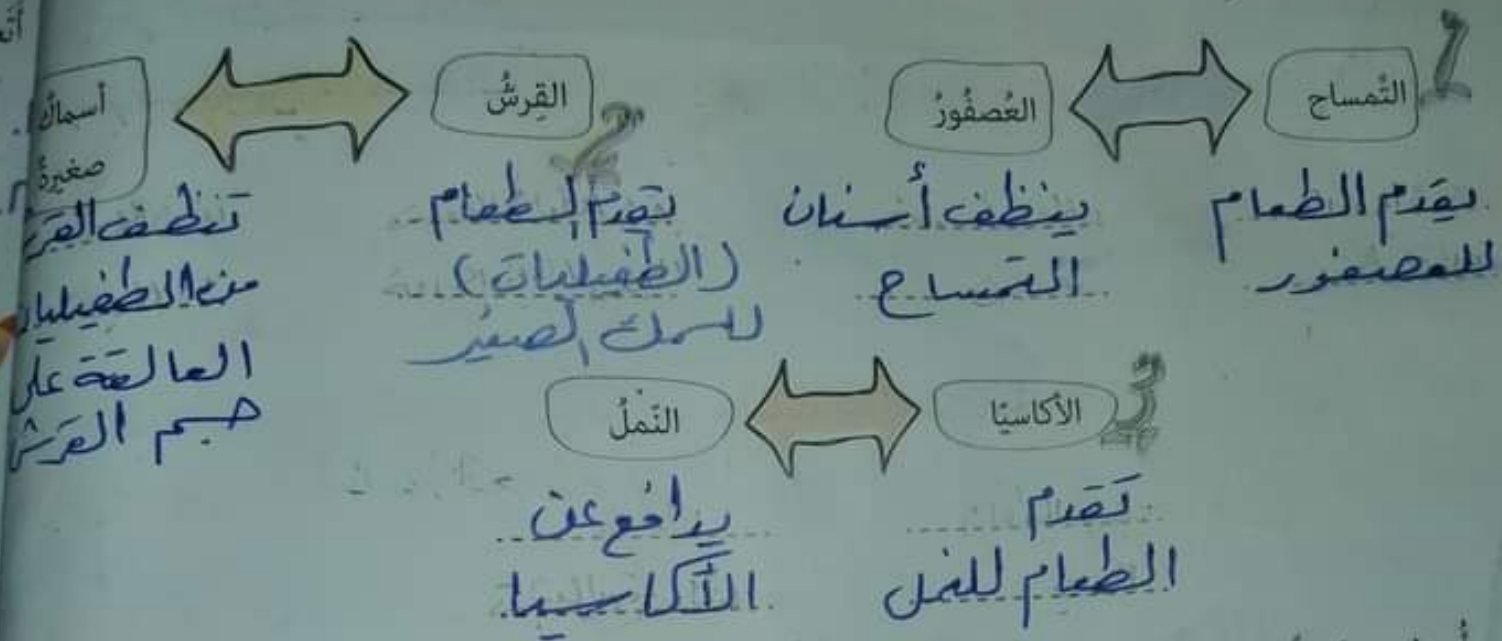 1
التَّمساح
العُصفُورُ
يقدم الطعام
للعصفور
ينظف أسنان
التمساح
2
القِرشُ
أسماكٌ
صغيرةٌ
يقدم الطعام
(الطفيليات)
للسمك الصغير
تنظف القرش
من الطفيليات
العالقة على
جسم القرش
3
الأكاسيّا
النّملُ
تقدم
الطعام للنمل
يدافع عن
الأكاسيا